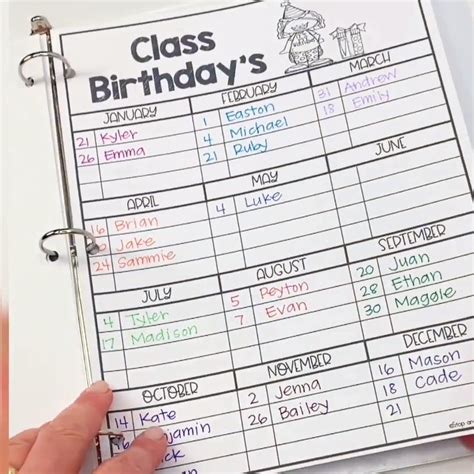 Class
Birthday's
JANUARY
21 Kyler
26 Emma
FEBRUARY
1 Easton
4 Michael
21 Ruby
MARCH
31 Andrew
18 Emily
APRIL
16 Brian
Jake
24 Sammie
MAY
4 Luke
JUNE
JULY
4 Tyler
17 Madison
AUGUST
5 Peyton
7 Evan
SEPTEMBER
20 Juan
28 Ethan
30 Maggie
OCTOBER
14 Kate
16
NOVEMBER
2 Jenna
26 Bailey
DECEMBER
16 Mason
18 Cade
21